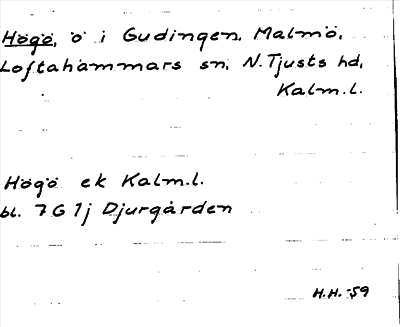 Högö, ö i Gudingen, Malmö,
Loftahammars sn, N. Tjusts hd,
Kalm.l.
Högö ek Kalm.l.
bl. 7G 1j Djurgården
H.H. -59